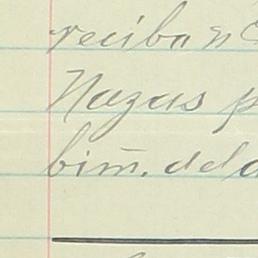 recibo n
Nazas p
bim. del a